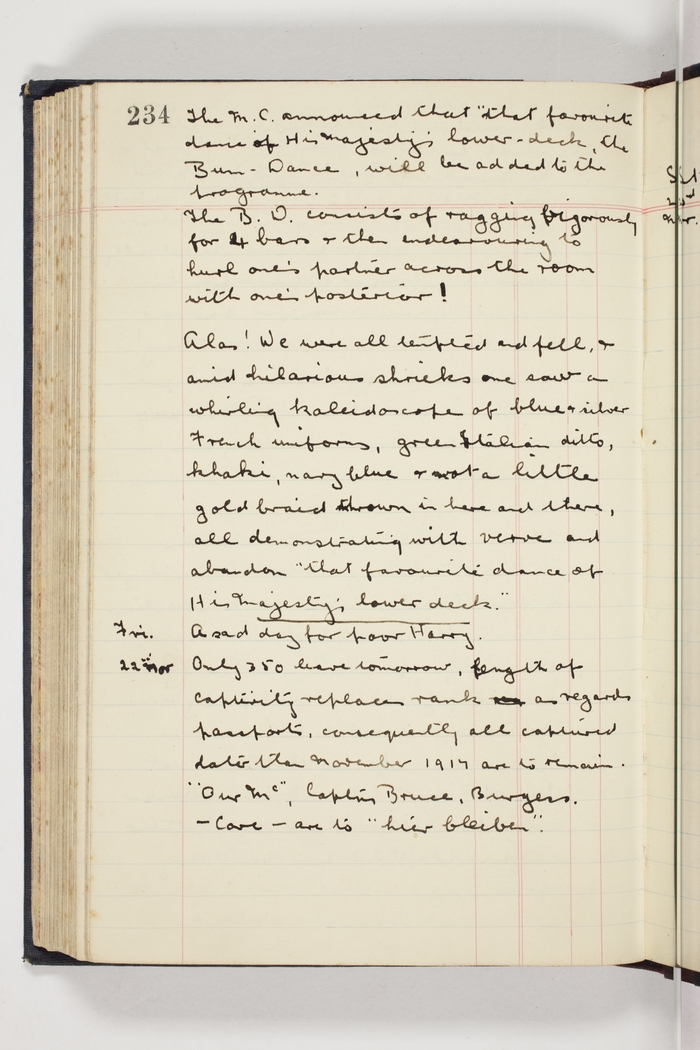 234
The M.C. announced that "that favourite
dance of His Majesty's lower-deck, the
Bum-Dance, will be added to the
programme.
The B.D. consists of ragging vigorously
for 4 bars & then endeavouring to
hurl one's partner across the room
with one's posterior!
Alas! We were all tempted and fell, &
amid hilarious shrieks one saw a
whirling kaleidoscope of blue & silver
French uniforms, green Italian ditto,
khaki, navy blue & not a little
gold braid thrown in here and there,
all demonstrating with verve and
abandon "that favourite dance of
His Majesty's lower deck."
Fri. A sad day for poor Harry.
22nd Nov Only 350 leave tomorrow, length of
captivity replaces rank as regards
passports, consequently all captured
later than November 1917 are to remain.
"Our Mc", Captns Bruce, Burgess.
- Cave - are to "hier bleiben".